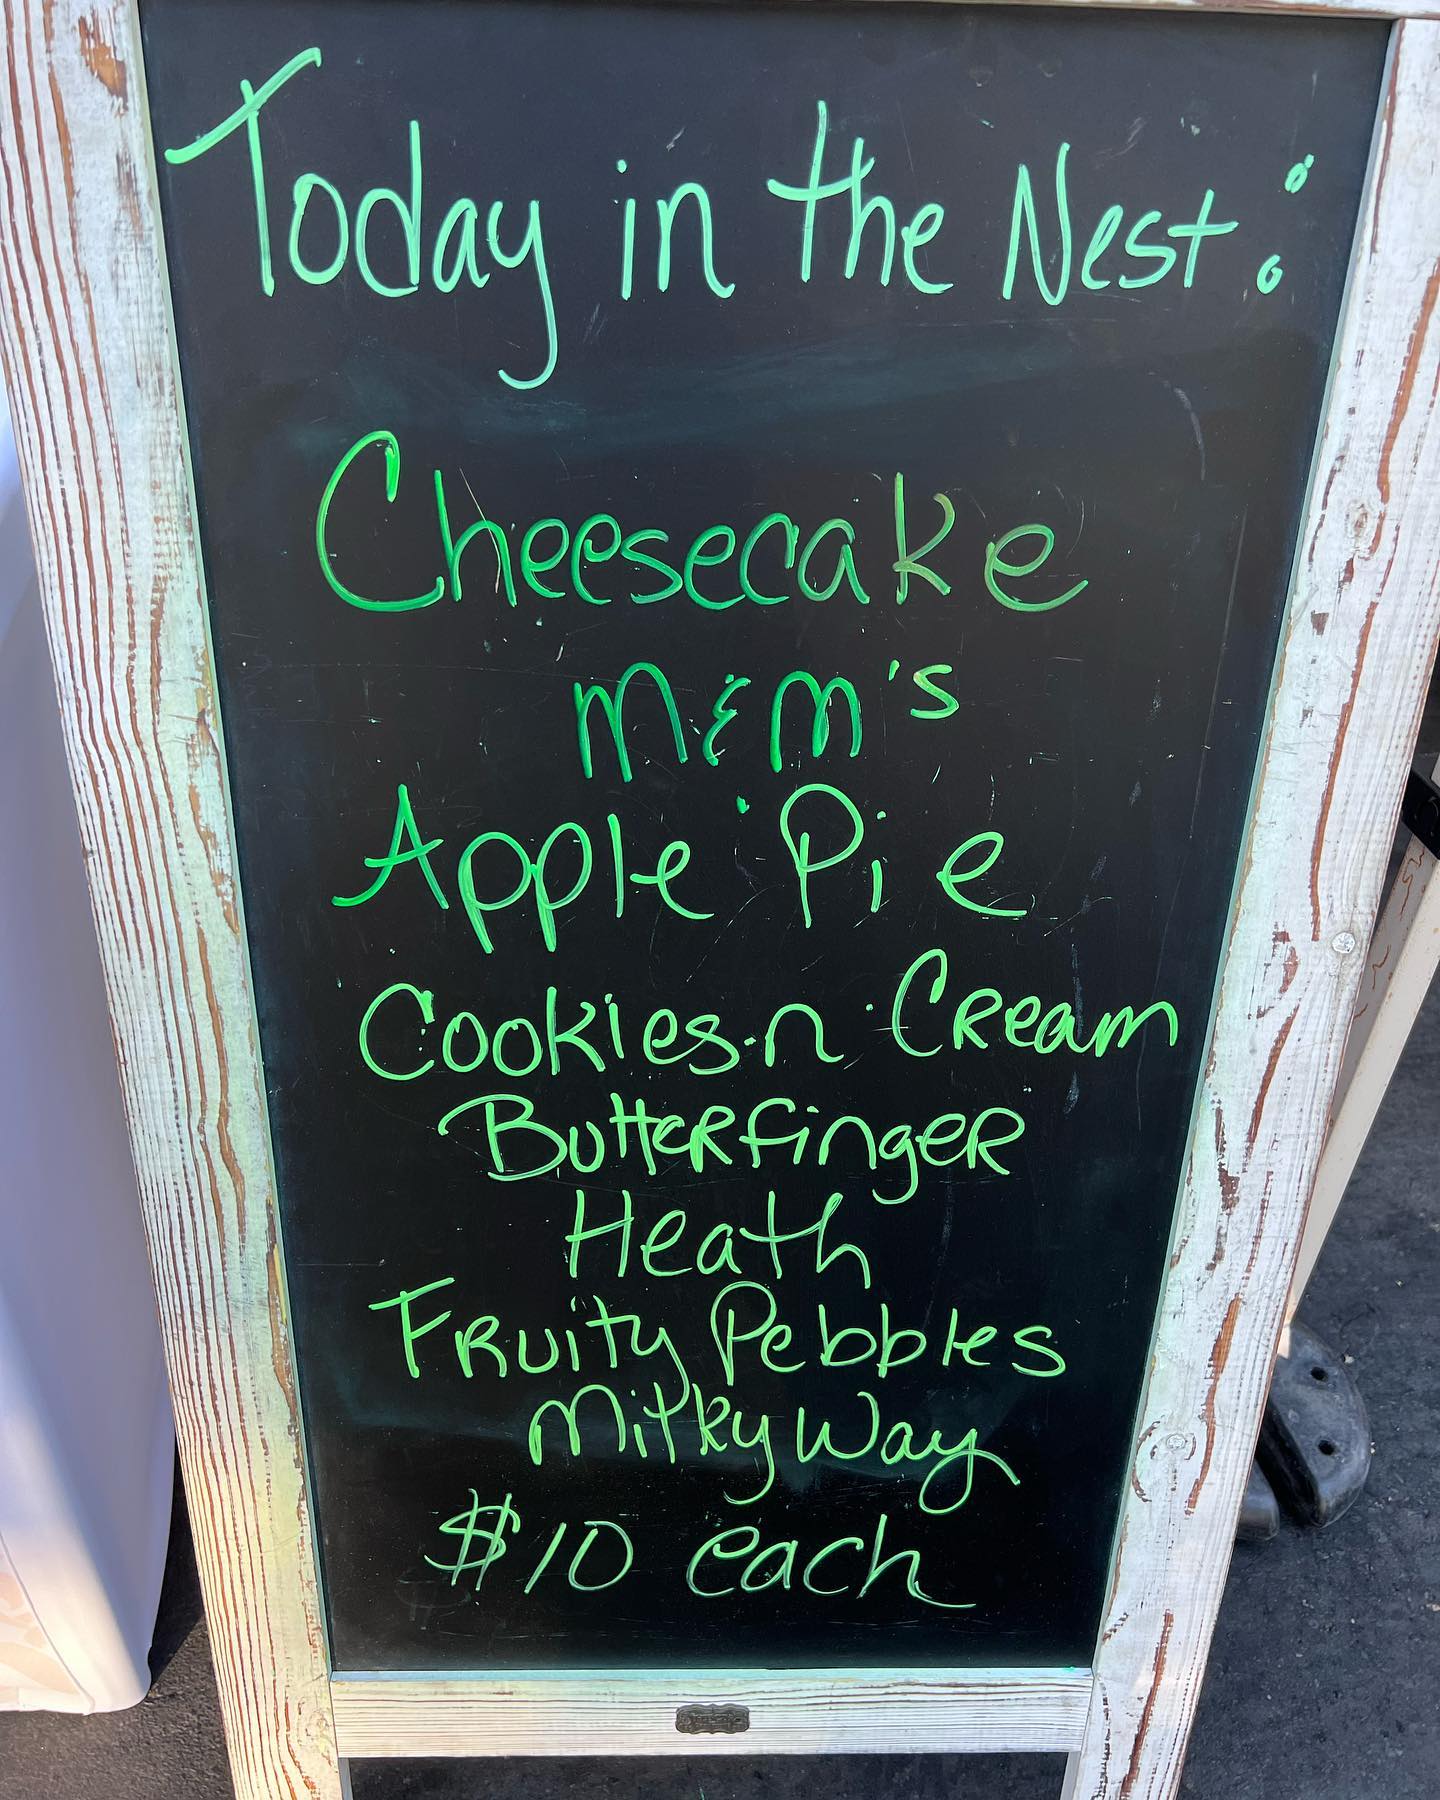 Today in the Nest:
Cheesecake
M&M's
Apple Pie
Cookies·n·Cream
Butterfinger
Heath
Fruity Pebbles
Milky Way
$10 each